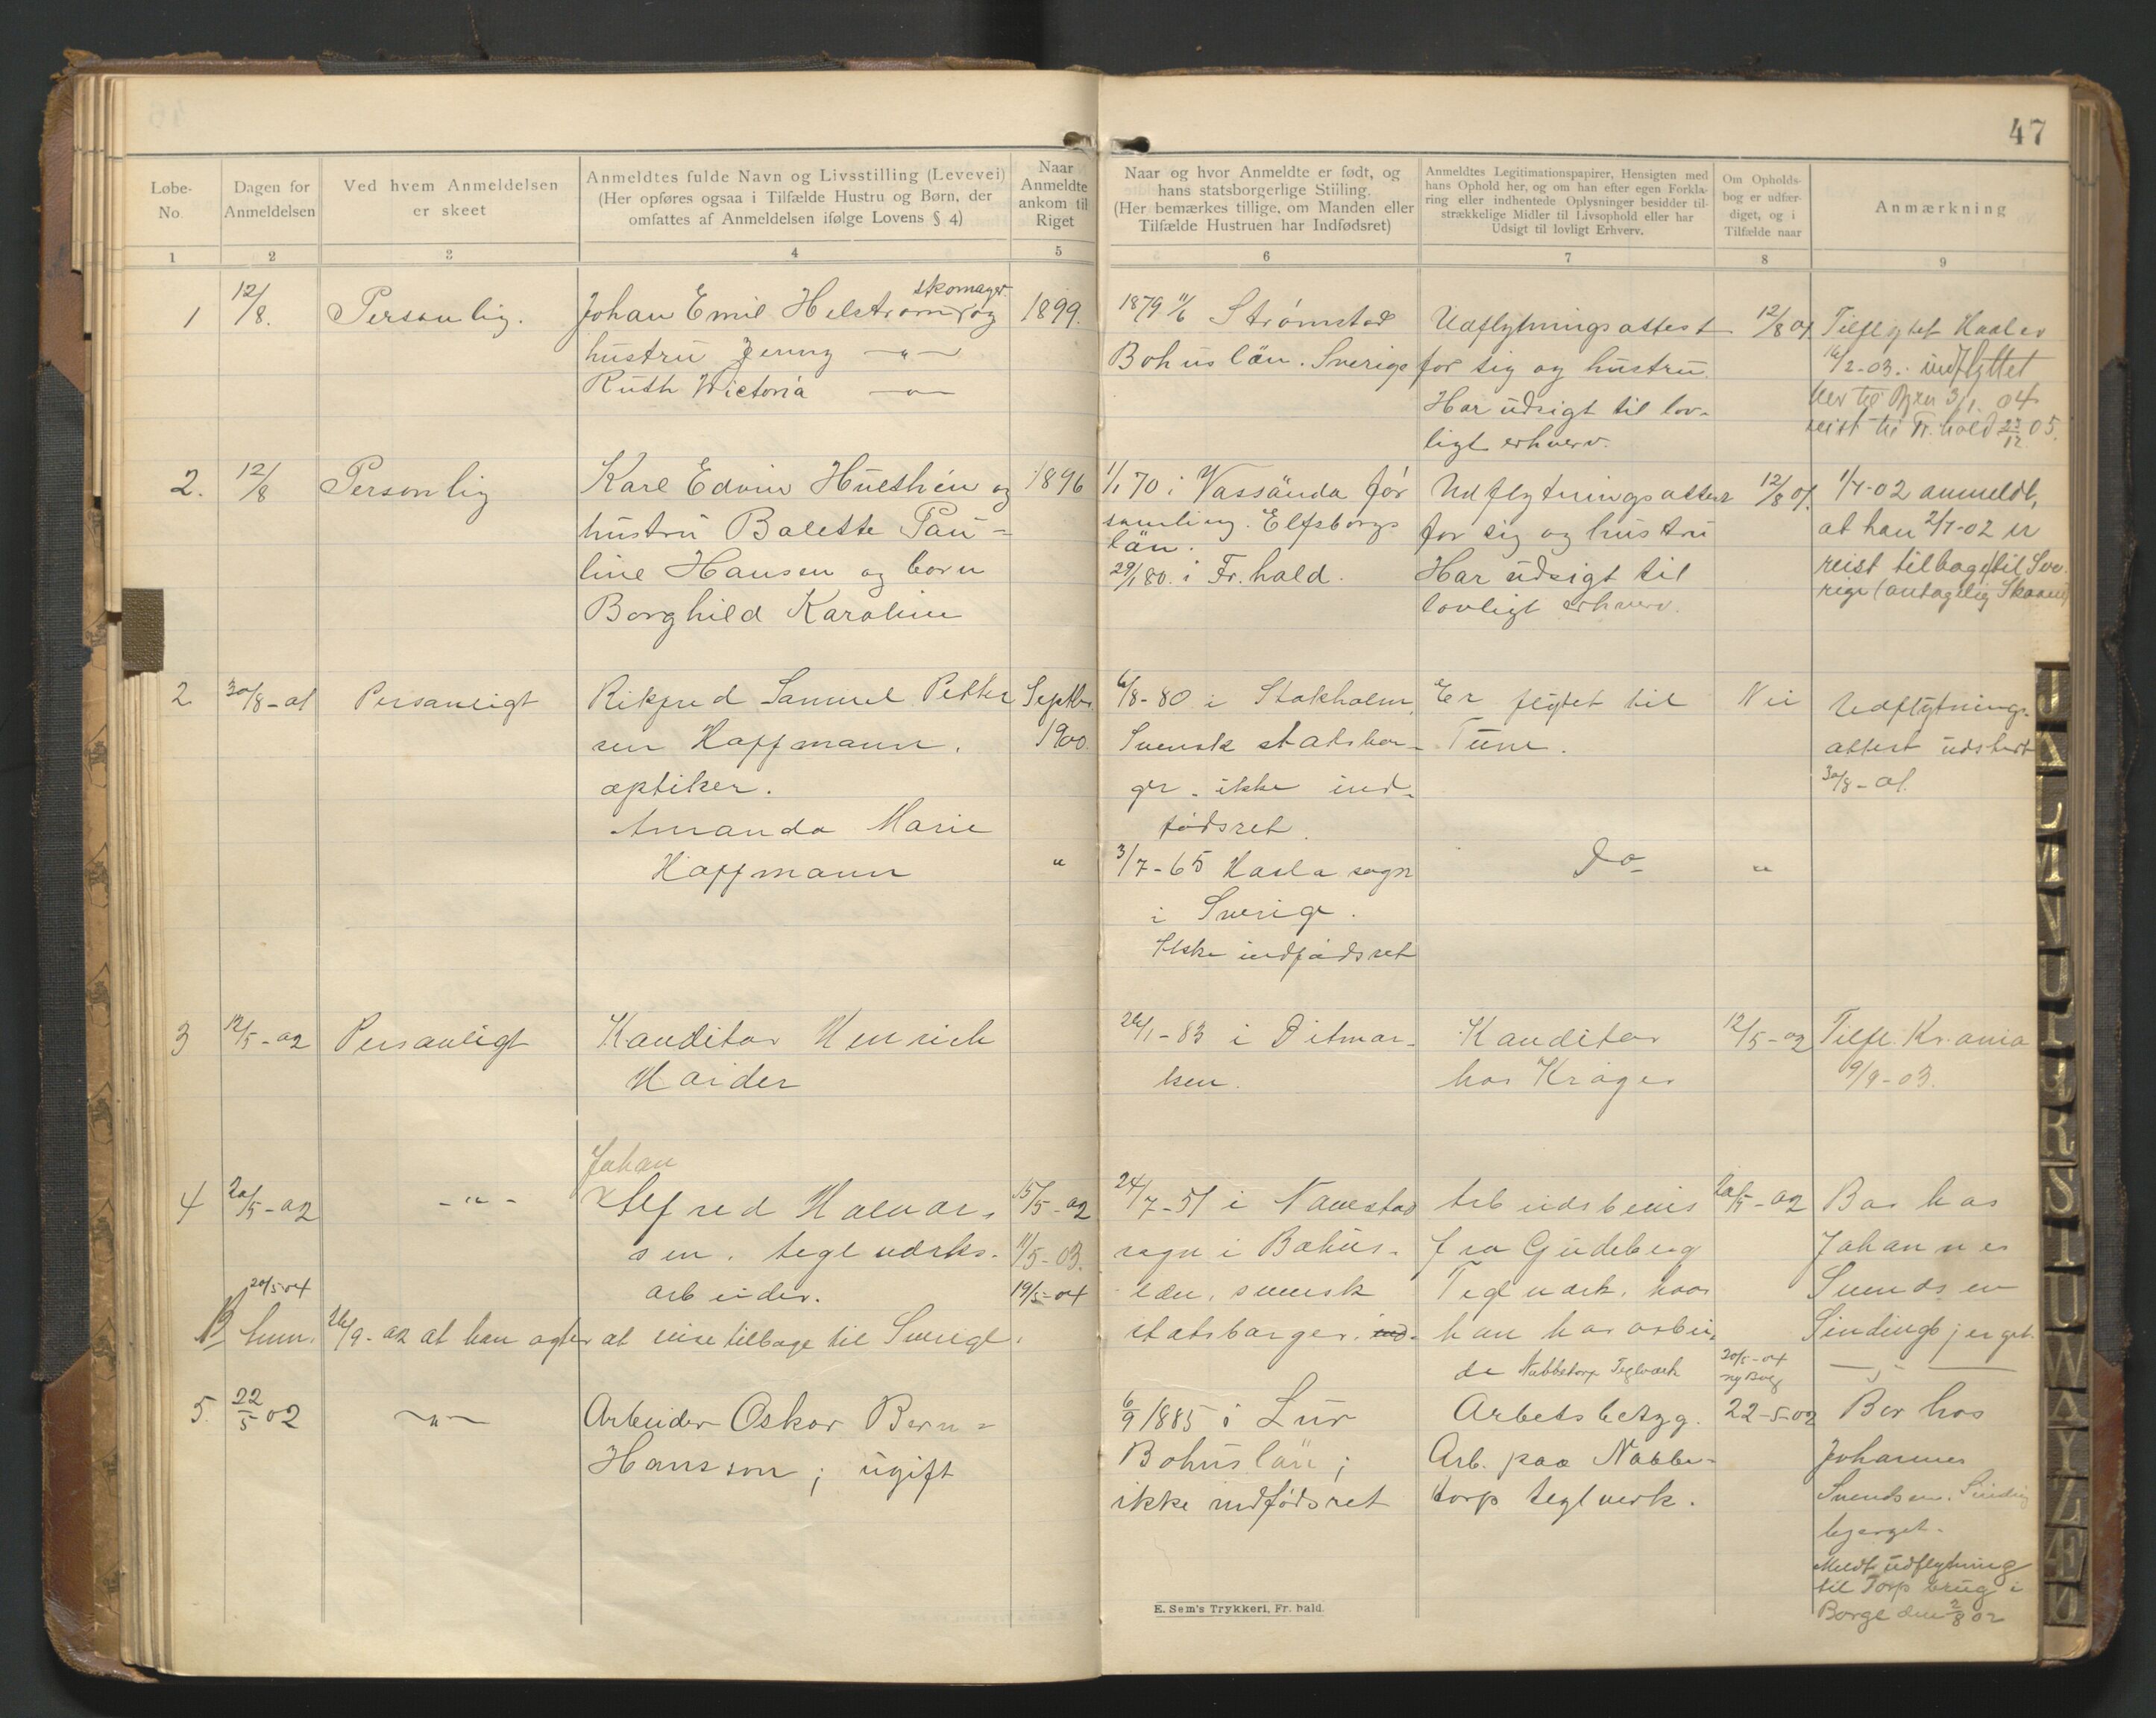 47
Løbe-
No.
Dagen for
Anmeldelsen
Ved hvem Anmeldelsen
er skeet
Anmeldtes fulde Navn og Livsstilling (Levevei)
(Her opføres ogsaa i Tilfælde Hustru og Børn, der
omfattes af Anmeldelsen ifølge Lovens § 4)
Naar
Anmeldte
ankom til
Riget
Naar og hvor Anmeldte er født, og
hans statsborgerlige Stiiling.
(Her bemærkes tillige, om Manden eller
Tilfælde Hustruen har Indfødsret)
Anmeldtes Legitimationspapirer, Hensigten med
hans Ophold her, og om han efter egen Forkla-
ring eller indhentede Oplysninger besidder til-
strækkelige Midler til Livsophold eller har
Udsigt til lovligt Erhverv.
Om Opholds-
bog er udfær-
diget, og i
Tilfælde naar
Anmærkning
1 2 3 4 5 6 7 8 9
1
12/8.
Personlig.
skomager
Johan Emil Helstrøm og
hustru Jenny —"—
Ruth Wictoria —"—
1899.
1879 11/6 Strømstad
Bohuslän. Sverige
Udflytningsattest
for sig og hustru.
Har udsigt til lov-
ligt erhverv.
12/8 01.
Tilflytet Haaler
16/2-03. indflyttet
her til Byen 3/1. 04
reist til Fr.hald 27/12 05.
2.
12/8
Personlig
Karl Edvin Hulthén og
hustru Balette Pau-
line Hansen og barn
Borghild Karoline
1896
1/1 70 i Vassända för
samling. Elfsborgs
län.
29/1 80. i Fr.hald.
Udflytningsattest
for sig og hustru
Har udsigt til
lovligt erhverv.
12/8 01.
1/7-02 anmeldt,
at han 2/7-02 er
reist tilbage til Sve
rige (antagelig Skaane)
2
30/8-01
Personligt
Rikfred Samuel Petter
sen Hoffmann.
optiker.
Amanda Marie
Hoffmann
Septbr.
1900.
"
6/8-80 i Stokholm.
Svensk statsbor-
ger. ikke ind-
fødsret.
3/7-65 Harla sogn
i Sverige.
Ikke indfødsret
Er flytet til
Tune.
Do
Nei
"
Udflytnings-
attest udstedt
30/8-01.
3
12/5-02
Personligt
Konditor Henrich
Harder
26/1-83 i Ditmar-
sken.
Konditor
hos Krøger
12/5-02
Tilfl. Kr.ania
9/9-03.
4
20/5-02
-"-
Johan
Alfred Halvor-
sen. teglverks-
arbeider.
15/5-02
11/5-03.
19/5-04
24/7-51 i Navestad
sogn i Bohus-
len, svensk
statsborger. ind-
Arbeidsbevis
fra Gudeberg
Teglverk, hvor
han har arbei-
de Nabbetorp Teglværk
20/5-02
20/5-04
ny Bog
Bor hos
Johannes
Svendsen
Sindingbjerget.
20/5 04
26/9-02 at han agter at reise tilbage til Sverige.
5.
22/5 02
—"—
Arbeider Oskar Bern-
Hansson; ugift
6/9 1885 i Lur
Bohuslän;
ikke indfødsret
Arbetsbetyg.
Arb. paa Nabbe-
torp teglverk.
22-5-02
Bor hos
Johannes
Svendsen. Sinding
bjerget.
Meldt udflytning
til Torp brug i
Borge den 2/8 02
E. Sem's Trykkeri, Fr. hald.
J
K
L
M
N
O
P
R
S
T
U
W
Y
Z
Æ
Ø